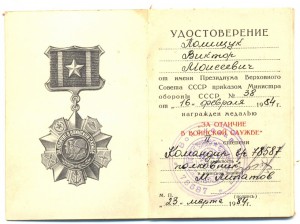 УДОСТОВЕРЕНИЕ
Полищук
Виктор
Моисеевич
от имени Президиума Верховного
Совета СССР приказом Министра
обороны СССР № 38
от "16" февраля 1984.
награжден медалью
"ЗА ОТЛИЧИЕ
В ВОИНСКОЙ СЛУЖБЕ"
II степени
Командир в/ч 78587
полковник
М.П. (подпись)
"23" марта 1984г.